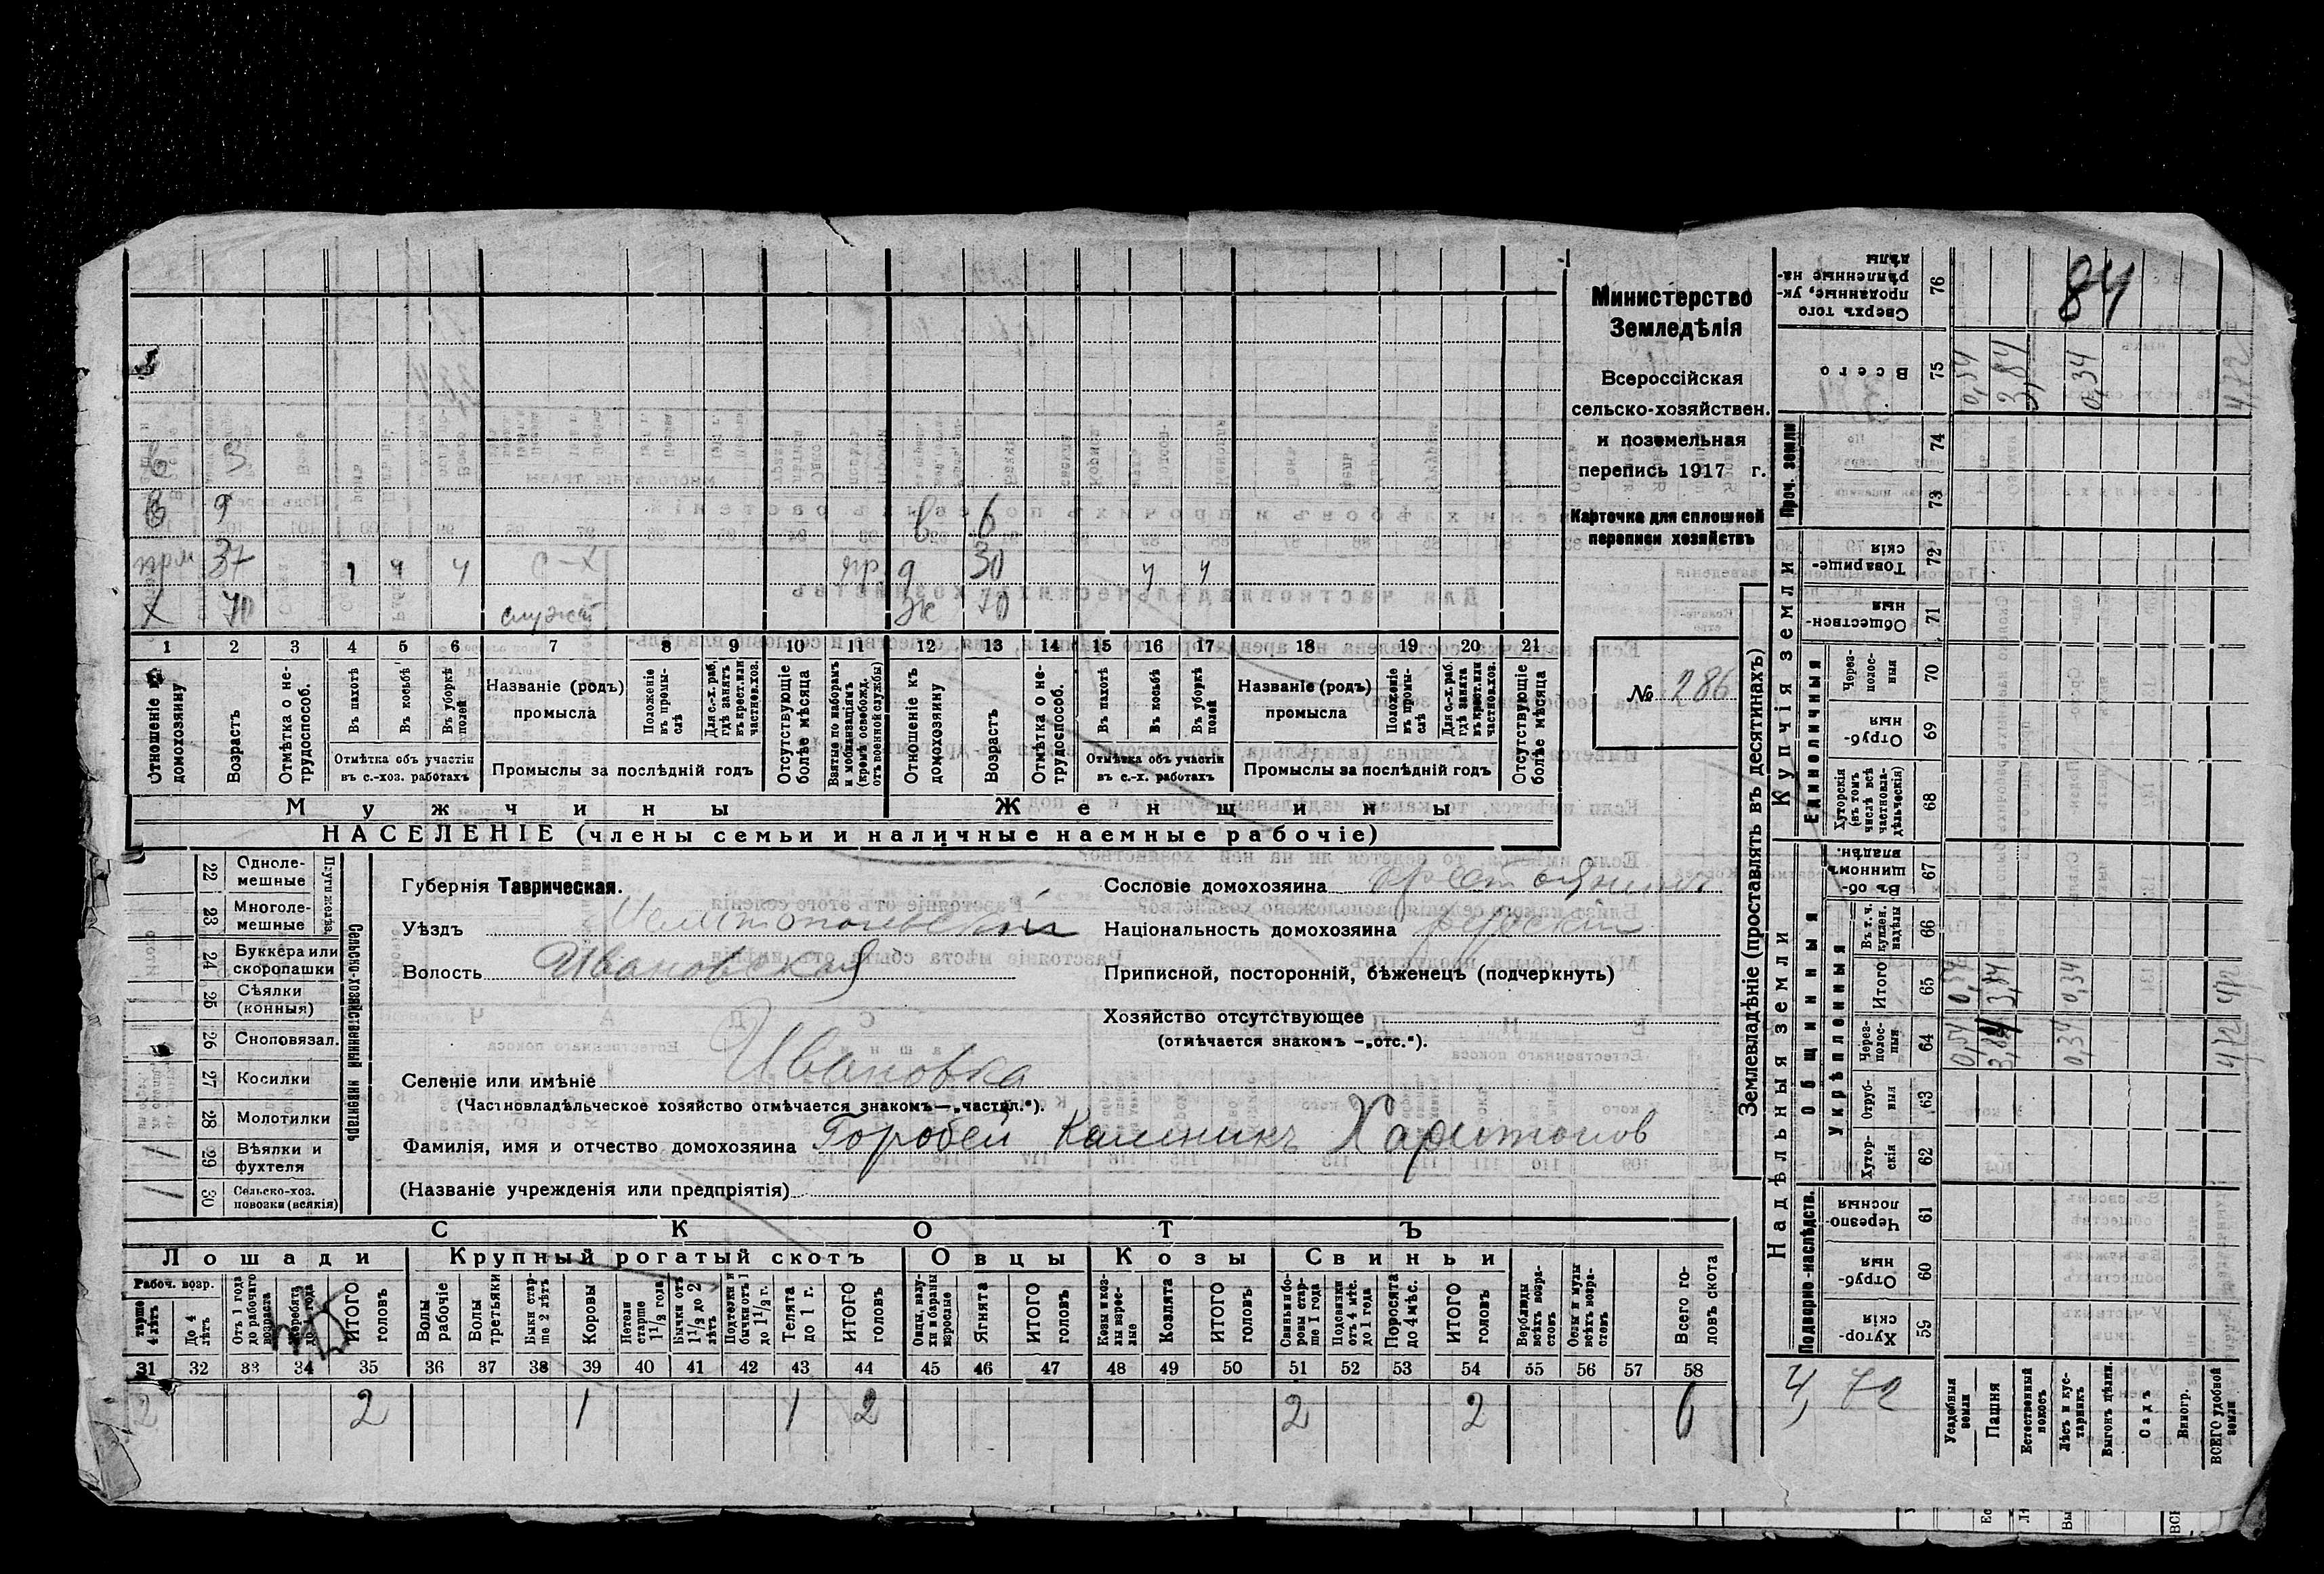 Министерство
Земледѣлія
Всероссійская
сельско-хозяйствен.
и поземельная
перепись 1917 г.
Карточка для сплошной
переписи хозяйствъ
№ 286
84
6 3
В 9 в 6
37 ч ч с-х д 30 ч ч
Х 70 служит ж 70
1 2 3 4 5 6 7 8 9 10 11 12 13 14 15 16 17 18 19 20 21
Отношеніе къ домохозяину
Возрастъ
Отмѣтка о не-трудоспособ.
Въ пахотѣ
Въ косьбѣ
Въ уборкѣ полей
Отмѣтка объ участіи въ с.-хоз. работахъ
Названіе (родъ) промысла
Положеніе въ промы-слѣ
Для с.-х. раб. гдѣ занятъ въ крест. или частнов. хоз.
Промыслы за послѣдній годъ
Отсутствующіе болѣе мѣсяца
Взятые по наборамъ и мобилизаціямъ (кромѣ освобожд. отъ военной службы)
Отношеніе къ домохозяину
Возрастъ
Отмѣтка о не-трудоспособ.
Въ пахотѣ
Въ косьбѣ
Въ уборкѣ полей
Отмѣтка объ участіи въ с.-х. работахъ
Названіе (родъ) промысла
Положеніе въ промы-слѣ
Для с.-х. раб. гдѣ занята въ крест. или частнов. хоз.
Промыслы за послѣдній годъ
Отсутствующіе болѣе мѣсяца
Мужчины Женщины
НАСЕЛЕНІЕ (члены семьи и наличные наемные рабочіе)
Сельско-хозяйственный инвентарь
Плуги желѣз.
22 Однолемешные
23 Многолемешные
24 Буккера или скоропашки
25 Сѣялки (конныя)
26 Сноповязал.
27 Косилки
28 Молотилки
29 Вѣялки и фухтеля 1
30 Сельско-хоз. повозки (всякія) 1
Губернія Таврическая.
Уѣздъ Мелитопольскій
Волость Ивановская
Селеніе или имѣніе Ивановка
(Частновладѣльческое хозяйство отмѣчается знакомъ—„частвл.“).
Фамилія, имя и отчество домохозяина Горобей Калиникъ Харитонов
(Названіе учрежденія или предпріятія)
Сословіе домохозяина крестьянинъ
Національность домохозяина русскій
Приписной, посторонній, бѣженецъ (подчеркнуть)
Хозяйство отсутствующее
(отмѣчается знакомъ —„отс.“).
СКОТЪ
Лошади Крупный рогатый скотъ Овцы Козы Свиньи
Рабоч. возр.
старше 4 лѣтъ
До 4 лѣтъ
Отъ 1 года до рабочаго возраста
Жеребята до 1 года
ИТОГО головъ
Волы рабочіе
Волы третьяки
Быки стар-ше 2 лѣтъ
Коровы
Нетели старше 1 1/2 года
Бычки отъ 1 1/2 до 2 лѣтъ
Подтелки и бычки отъ 1 до 1 1/2 г.
Телята до 1 г.
ИТОГО головъ
Овцы, валу-хи и бараны взрослые
Ягнята
ИТОГО головъ
Козы и коз-лы взрос-лые
Козлята
ИТОГО головъ
Свиньи и бо-ровы стар-ше 1 года
Подсвинки отъ 4 мѣс. до 1 года
Поросята до 4 мѣс.
ИТОГО головъ
Верблюды всѣхъ возра-стовъ
Ослы и мулы всѣхъ возра-стовъ
Всего го-ловъ скота
31 32 33 34 35 36 37 38 39 40 41 42 43 44 45 46 47 48 49 50 51 52 53 54 55 56 57 58
2 2 1 1 2 2 2 6
Землевладѣніе (проставлять въ десятинахъ)
Купчія земли
Проч. земли
Единоличныя
Надѣльныя земли
Общинныя
Укрѣпленныя
Подворно-наслѣдств.
Сверхъ того проданные, ук-рѣпленные на-дѣлы 76
Всего 75 0,54 3,84 0,34 4,72
74
73
Товарище-скія 72
Обществен-ныя 71
Через-полос-ныя 70
Отруб-ныя 69
Хуторскія (въ томъ числѣ всѣ частновла-дѣльческія) 68
Въ об-щинномъ владѣн. 67
Въ т. ч. куплен. надѣлы 66
Итого 65 0,54 3,84 0,34 4,72
Через-полос-ныя 64 0,54 3,84 0,34 4,72
Отруб-ныя 63
Хутор-скія 62
Черезпо-лосныя 61
Отруб-ныя 60
Хутор-скія 59
4,72
Усадебныя земли
Пашня
Естественный покосъ
Лѣсъ и кус-тарникъ
Выгонъ цѣлин.
Садъ
Виногр.
ВСЕГО удобной земли